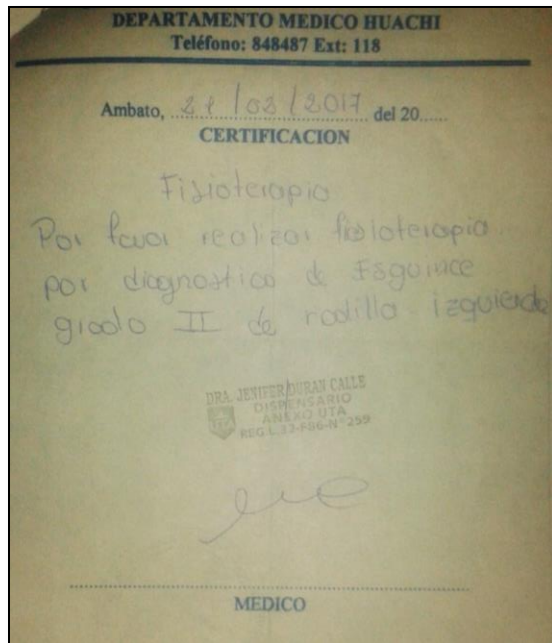 DEPARTAMENTO MEDICO HUACHI
Teléfono: 848487 Ext: 118
Ambato, 21/03/2017 del 20......
CERTIFICACION
Fisioterapia
Por favor realizar fisioterapia
por diagnostico de Esguince
grado II de rodilla izquierda
DRA. JENIFER DURAN CALLE
DISPENSARIO
ANEXO UTA
REG L.32-F86-N°259
MEDICO